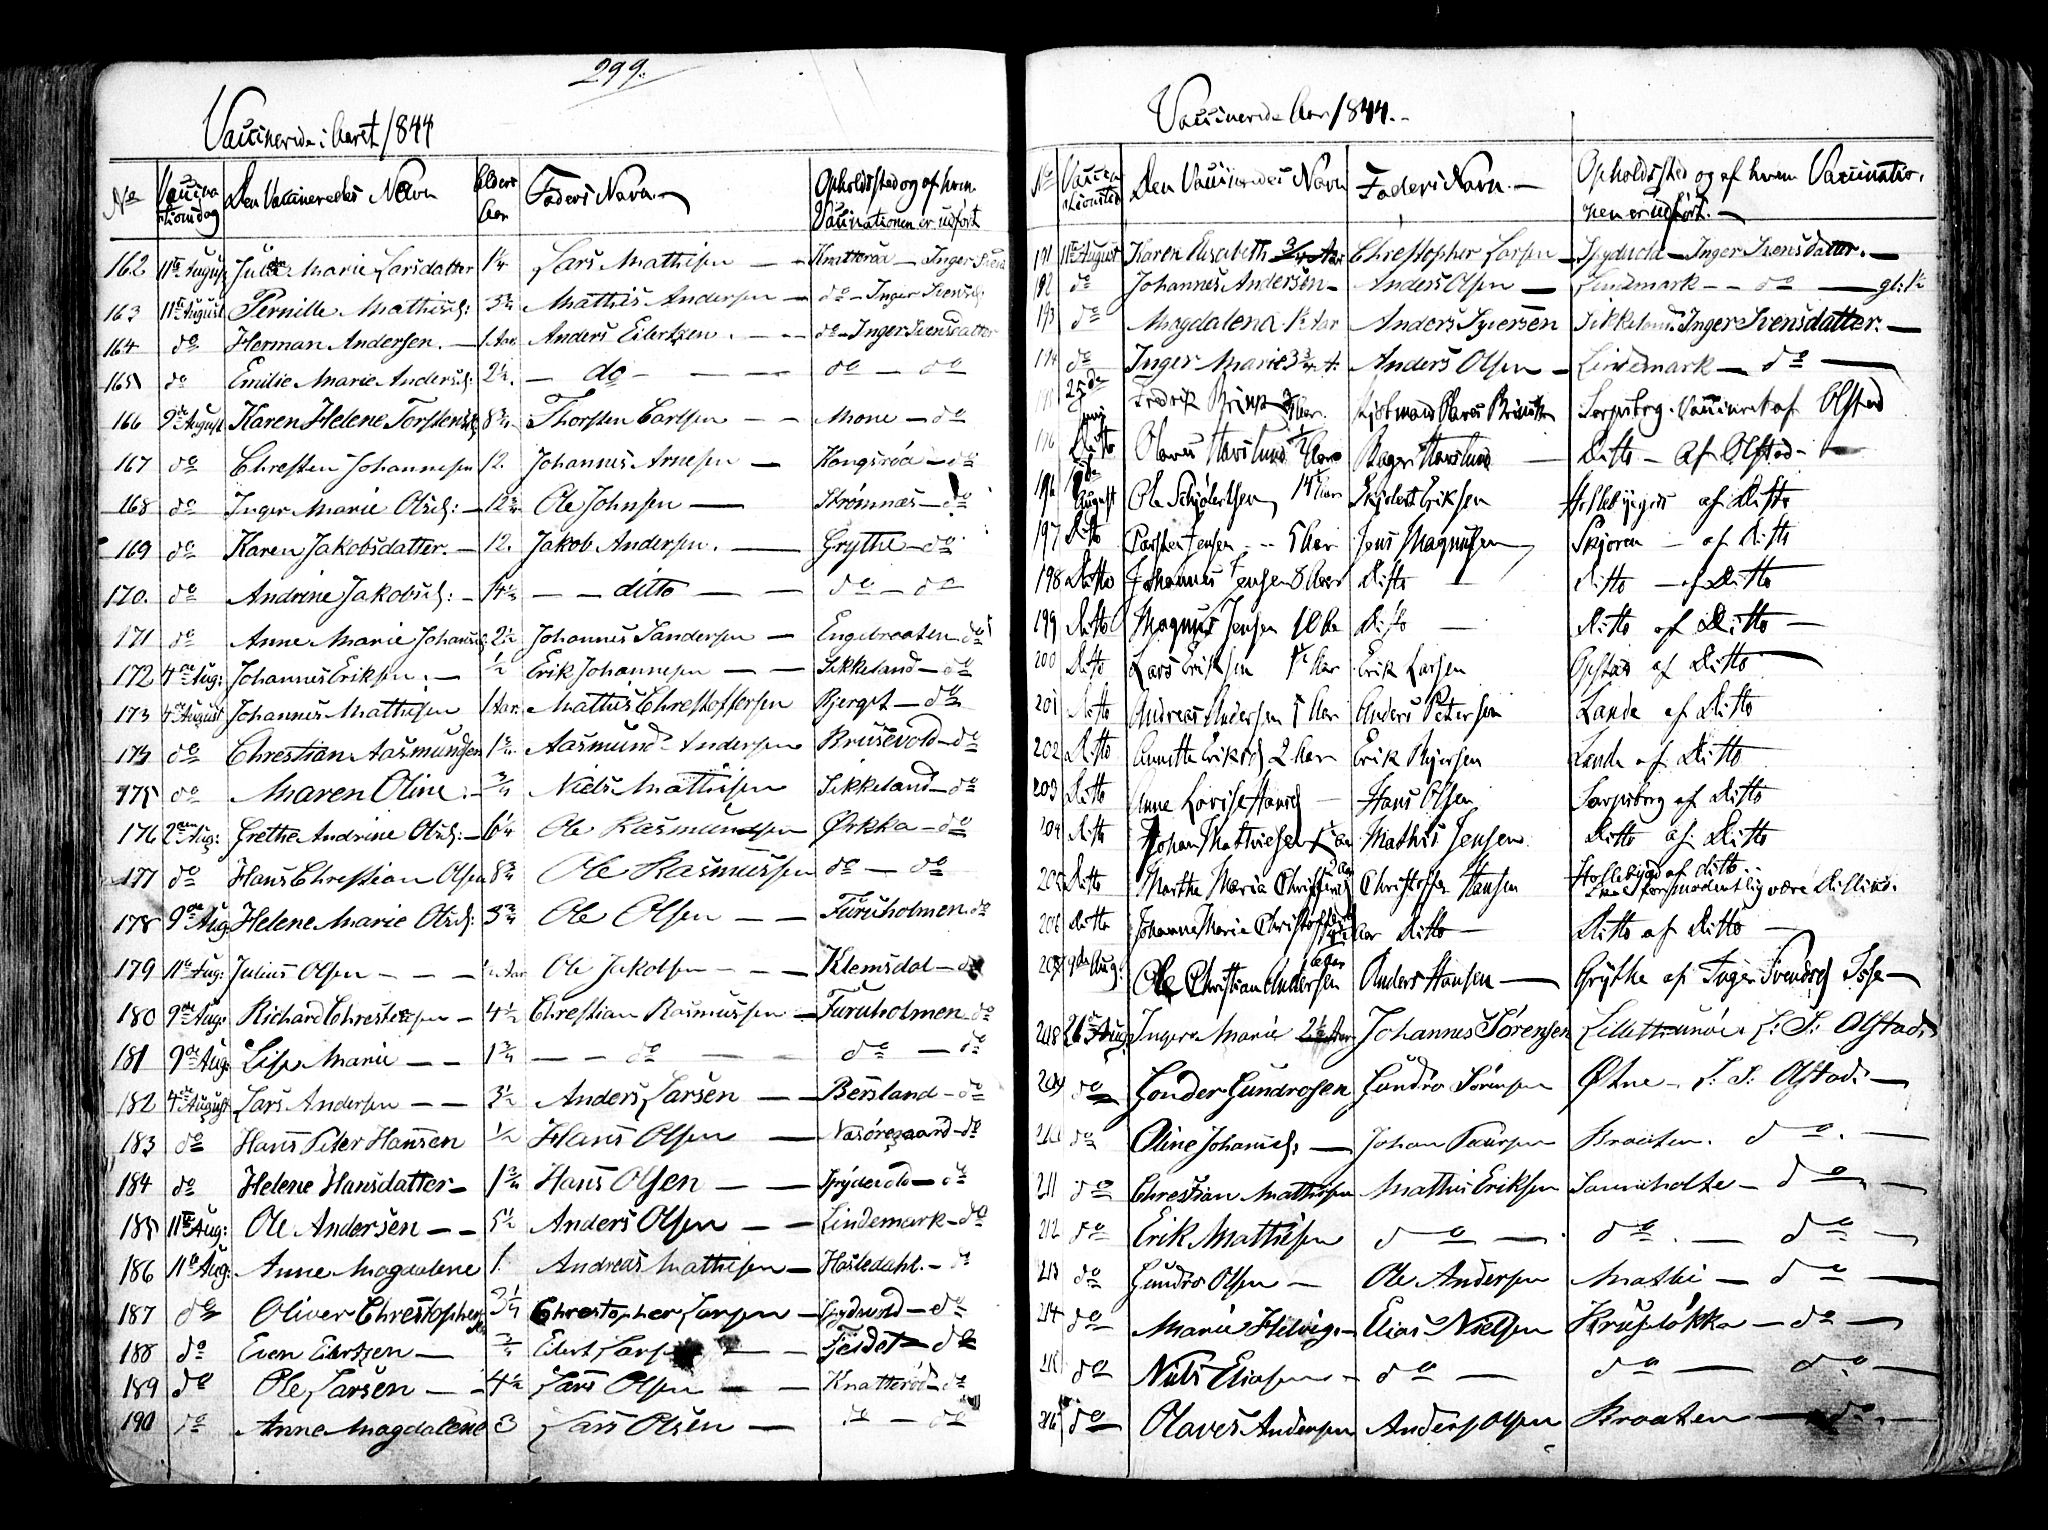 299.
Vaccinerede i Aaret 1844
No Vaccinationsdag Den Vaccineredes Navn Alders Aar Faders Navn Opholdssted og af hvem Vaccinationen er udført
162 11te August Marie Larsdatter 1¼ Lars Mathisen — Inger
163 11te August Pernille Mathisd: 3¾ Mathis Andersen — do — Inger Svensd:
164 do Herman Andersen. — 1 Aar. Anders Eilertzen. — do — Inger Svensdatter
165 do Emilie Marie Andersd: 2½. — do — do — do
166 9de August Karen Helene Torstensd: 8¾ Thorsten Carlsen — Mone — do
167 do Chresten Johannesen 12. Johannes Arnesen — Kongsröd — do
168 do Inger Marie Olsd: — 12¾ Ole Johnsen — Strömnæs — do
169 do Karen Jakobsdatter. — 12. Jakob Andersen. — Grythe — do
170. do Andrine Jakobsd: — 14½ — ditto — do — do
171 do Anne Marie Johansd: 2½ Johannes Sandersen — Engebraaten — do
172 4de Aug: Johannes Eriksen. — ½ Erik Johannesen — Sikkeland — do
173 4de August Johannes Mathisen 1 Aar. Mathis Chrestoffersen Bjerget — do
174 do Chrestian Aasmundsen 1¾ Aasmund Andersen Brusevold — do
175 do Maren Oline. — ¾ Niels Mathisen Sikkeland — do
176 2den Aug: Grethe Andrine Olsd: — 6¼ Ole Rasmussen Ørkka — do
177 do Hans Chrestian Olsen 8¾ Ole Rasmussen do — do
178 9de Aug: Helene Marie Olsd: 3¾ Ole Olsen — Furuholmen — do
179 11te Aug: Julius Olsen — Aar Ole Jakobsen — Klemsdal — do
180 9de Aug: Richard Chrestensen — 4½ Chrestian Rasmussen — Furuholmen — do
181 9de Aug: Lise Marie — 1¾ — do — do — do
182 4de August Lars Andersen — 3½ Anders Larsen — Bersland — do
183 do Hans Peter Hansen ½ Hans Olsen — Næsöregaard — do
184 do Helene Hansdatter — 1¾ Hans Olsen — Spydevold — do
185 11te Aug: Ole Andersen — 5½ Anders Olsen — Lindemark — do
186 11te Aug: Anne Magdalene 1. Andreas Mathisen — Hasledahl. — do
187 do Oliver Chrestophersen 3½ Chrestopher Larsen — — do
188 do Even Eilertzen — ¾ Eilert — Feidet — do
189 do Ole Larsen — 4½ Lars Olsen — Knatteröd — do
190 do Anne Magdalene 3 Lars Olsen — do — do
Vaccinerede Aar 1844. —
No Den Vaccineredes Navn Faders Navn. — Opholdssted og af hvem Vaccinationen er udført. —
191 11te August Karen Elisabeth ¾ Aar Chrestopher Larsen — — Inger Svensdatter. —
192 do Johannes Andersen — Anders Olsen — Lindemark — do —
193 do Magdalena 1½ Aar Anders Syversen Sikkeland Inger Svensdatter. —
194 do Inger Marie 3¾ A. Anders Olsen — Lindemark — do —
25de Juni Fredrik Sarpsborg. Vaccineret af Olstad
Ditto Olaves Harslund Harslund — Ditto — af Olstad —
196 August Ole 14 Aar Eriksen af Ditto
197 Ditto Jensen — 5 Aar Jens Magnusen Skjøren — af Ditto
198 Ditto Johannes Jensen 8 Aar Ditto — Ditto — af Ditto
199 Ditto Magnus Jensen 10 Aar Ditto — Ditto af Ditto —
200 Ditto Lars Eriksen Aar Erik Larsen Opstad af Ditto
201 Ditto Andreas Andersen Aar Anders Petersen Lande af Ditto
202 Ditto Annette Eriksd 2 Aar Erik Lande af Ditto
203 Ditto Anne Lovise Hansd — Hans Olsen Sarpsborg af Ditto
204 Ditto Johan Mathiesen Mathis Jensen Ditto af Ditto
205 Ditto Marthe Maria Christoffer Hansen af ditto
206 Ditto Johanne Maria Ditto — Ditto af Ditto —
9de Aug: Ole Christian Andersen Anders Hansen — Grythe af Inger Svendsd
208 26de Aug: Inger Marie 2½ Aar Johannes Sörensen Olstad.
209 do Gunder Gundrosen Gundro Sörensen Østne — Olstad. —
210 do Oline Johansd: — Johan Braaten. do. —
211 do Chrestian Mathisen Mathis Eriksen — do —
212 do Erik Mathisen do — do. — do —
213 do Gundro Olsen — Ole Andersen — do —
214 do Marie Helvig. — Elias Nielsen Krugeløkka — do —
215 do Niels Eliasen — do — do — do —
216 do Olaves Andersen Anders Olsen Braaten — do. —